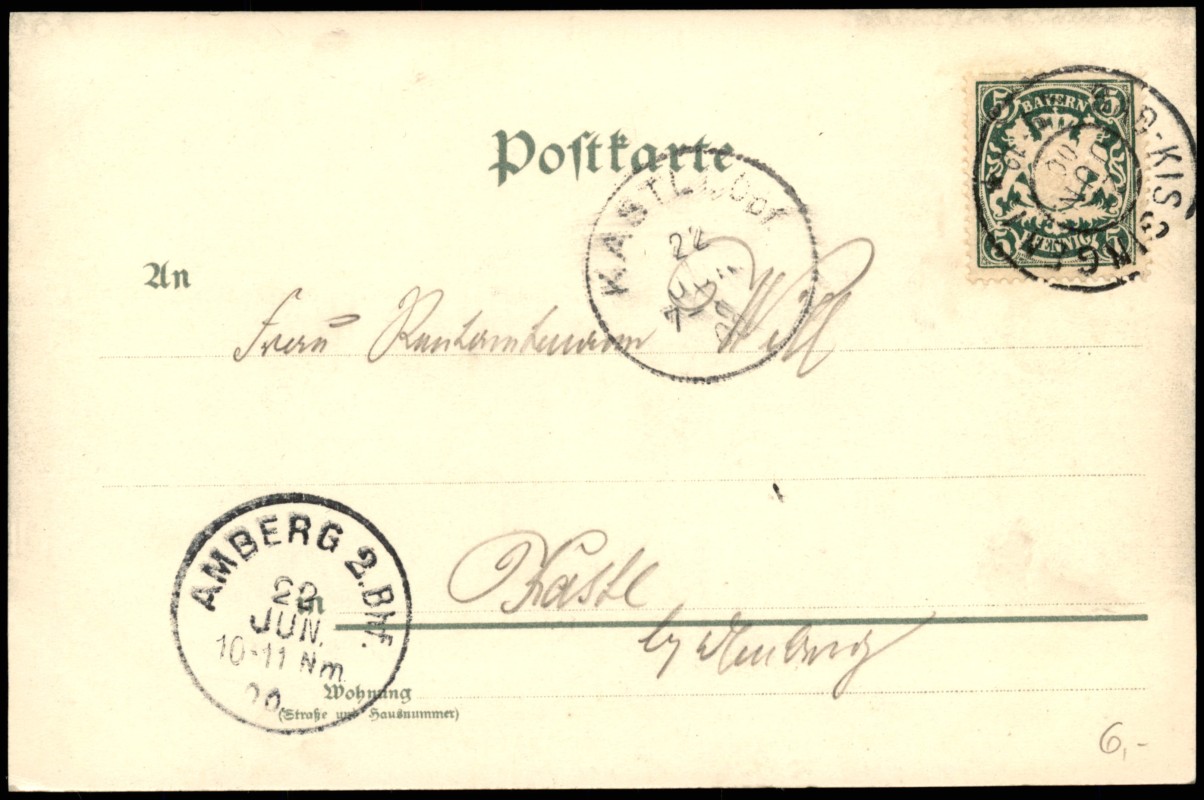 Postkarte
5 BAYERN 5
5 PFENNIG 5
BAD-KISSINGEN
KASTL
22
An
Frau Rentamtmann Will
AMBERG 2. Bhf.
22
JUN.
10-11 Nm.
00.
in
Kastl
by Amberg
Wohnung
(Straße und Hausnummer)
6,-